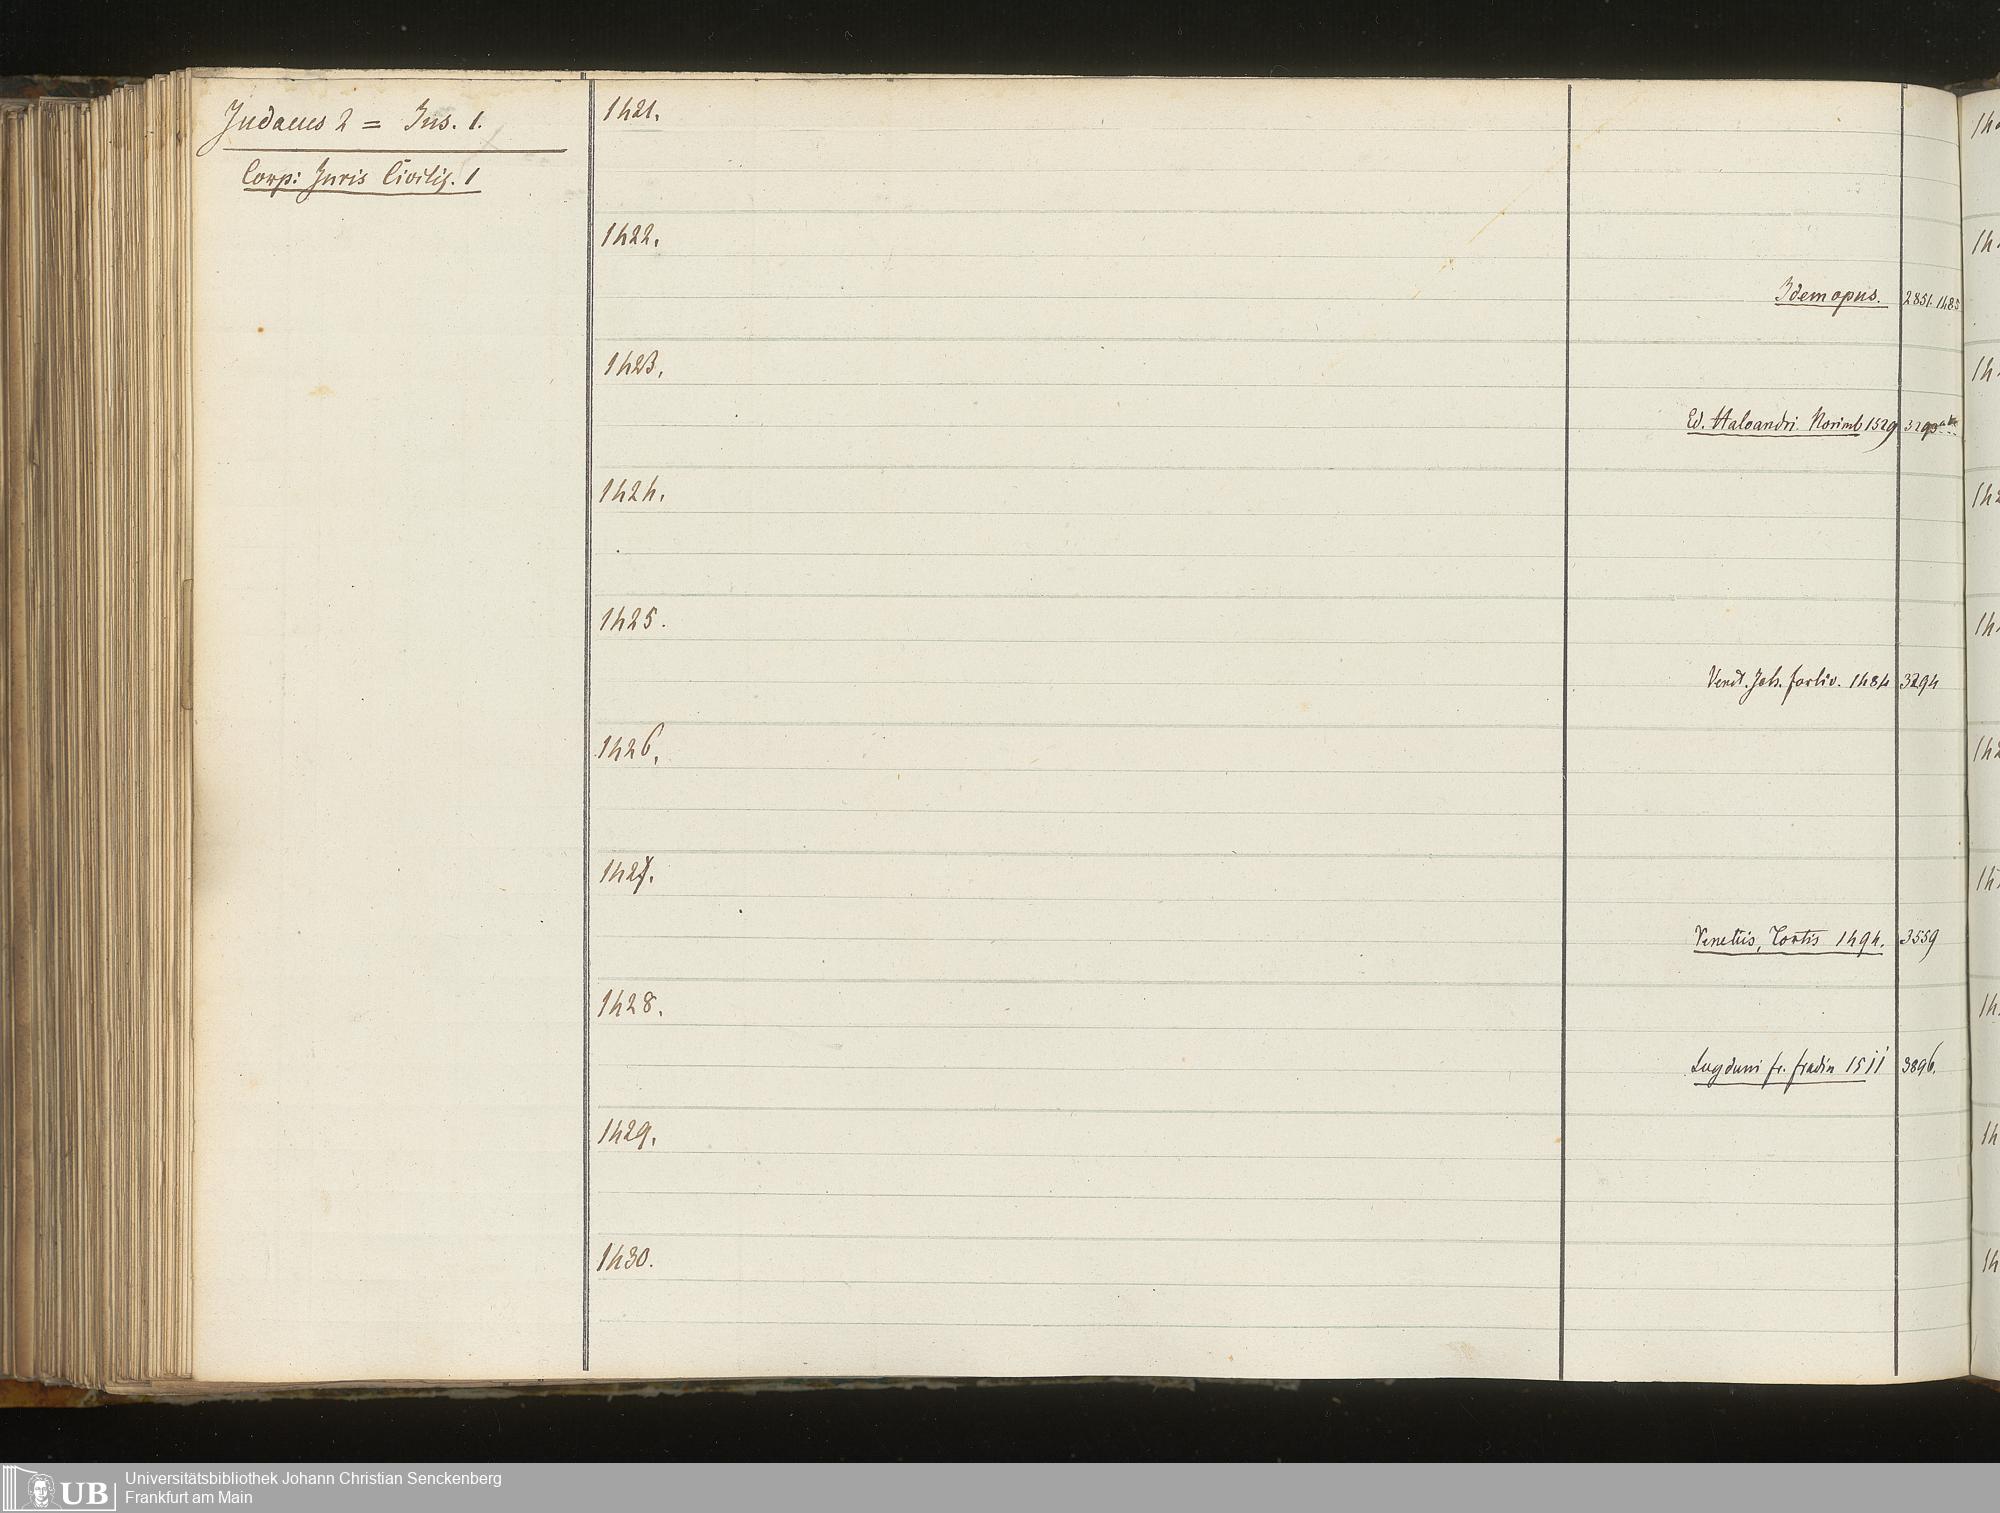 Judaeus 2 = Jus. 1.
Corp: Juris Civilis. 1
1421.
1422.
Idem opus. 2851. 1485
1423.
Ed. Haloandri. Norimb 1529 3293
1424.
1425.
Venet. Joh. forliv. 1484 3294
1426.
1427.
Venetiis, Tortis 1494. 3559
1428.
Lugduni fr. fradin 1511 3896.
1429.
1430.
UB
Universitätsbibliothek Johann Christian Senckenberg
Frankfurt am Main